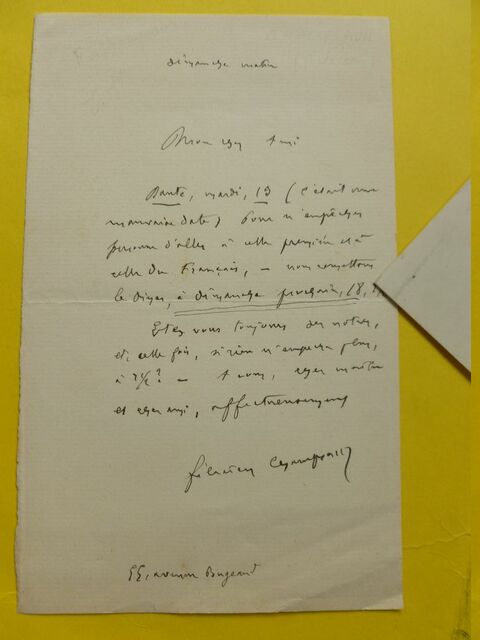 dimanche matin
Mon cher ami
Dante, mardi, 13 (c'était une
mauvaise date) Pour n'empêcher
personne d'aller à cette première et à
celle du Français, – nous remettons
le dîner, à dimanche prochain, 18,
Etes vous toujours des nôtres,
et, cette fois, si rien n'empêche plus,
à 7 1/2 ? – à vous, cher maître
et cher ami, affectueusement
Félicien Champsaur
55, avenue Bugeaud